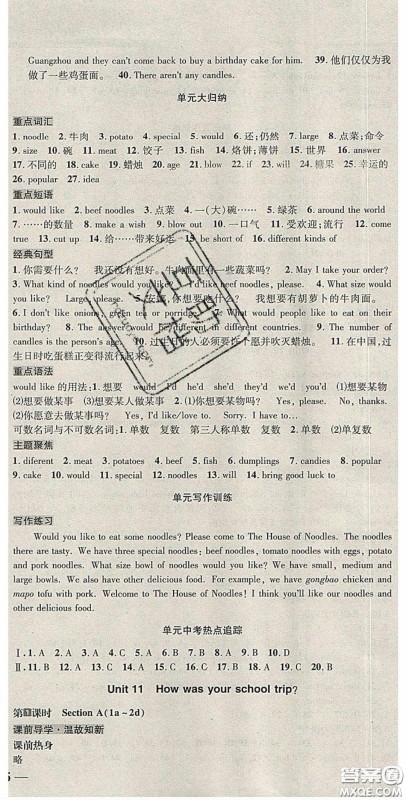 Guangzhou and they can't come back to buy a birthday cake for him. 39. 他们仅仅为我
做了一些鸡蛋面。 40. There aren't any candles.
单元大归纳
重点词汇
1. noodle 2. 牛肉 3. potato 4. special 5. would 6. 还;仍然 7. large 8. 点菜;命令
9. size 10. 碗 11. meat 12. 饺子 13. fish 14. 烙饼;薄饼 15. 世界 16. answer
17. 不同的 18. cake 19. 蜡烛 20. age 21. blow 22. if 23. will 24. 糖果 25. 幸运的
26. popular 27. idea
重点短语
1. would like 2. beef noodles 3. 点菜 4. 一(大)碗…… 5. 绿茶 6. around the world
7. ……的数量 8. make a wish 9. blow out 10. 一口气 11. 受欢迎;流行 12. come
true 13. 切碎 14. 给……带来好运 15. be short of 16. different kinds of
经典句型
1. 你需要什么? 我还没有想好。牛肉面里有一些蔬菜吗? 2. May I take your order?
3. What kind of noodles would you like? I'd like beef noodles, please. 4. What size would
you like? Large, please. 5. 安娜,你想要吃什么? 我想要有胡萝卜的牛肉面。
6. I don't like onions, green tea or porridge. 7. What would people like to eat on their
birthday? 8. The answer would be different in different countries. 9. The number of
candles is the person's age. 10. 过生日的人必须要许个愿并吹灭蜡烛。 11. 在中国,过
生日时吃蛋糕正变得流行起来。
重点语法
would like 的用法:1. 想要 would I'd he'd she'd they'd you'd (1)想要某物
(2)想要做某事 (3)想要某人做某事 2. (1)你想要某物吗? Yes, please. No, thanks.
(2)你愿意去做某事吗? Yes, I'd like/love to. Sorry. I have to…
可数名词与不可数名词:1. 单数 复数 第三人称单数 复数 2. (1)单数 (2)单数复数
主题聚焦
1. diferent 2. meat 3. potatoes 4. beef 5. fish 6. dumplings 7. candies 8. popular
9. cake 10. would 11. wish 12. blow 13. will 14. piece 15. bring good luck to
单元写作训练
写作练习
Would you like to eat some noodles? Please come to The House of Noodles. The noodles
there are tasty. We have three special noodles; beef noodles, tomato noodles with eggs, potato
and pork noodles. What size bowl of noodles would you like? We have small, medium and
large bowls. We also have other delicious food. For example, we have gongbao chicken and
mapo tofu with pork. Welcome to The House of Noodles! I think you will like our noodles and
other delicious food.
单元中考热点追踪
Ⅰ. 1. A 2. A 3. A 4. A 5. A 6. C 7. C 8. D 9. B 10. A
Ⅱ. 11. B 12. B 13. A 14. D 15. C 16. A 17. A 18. C 19. C 20. B
Unit 11 How was your school trip?
第1课时 Section A(1a~2d)
课前导学·温故知新
课前热身
略
答案圈
MXQE.COM